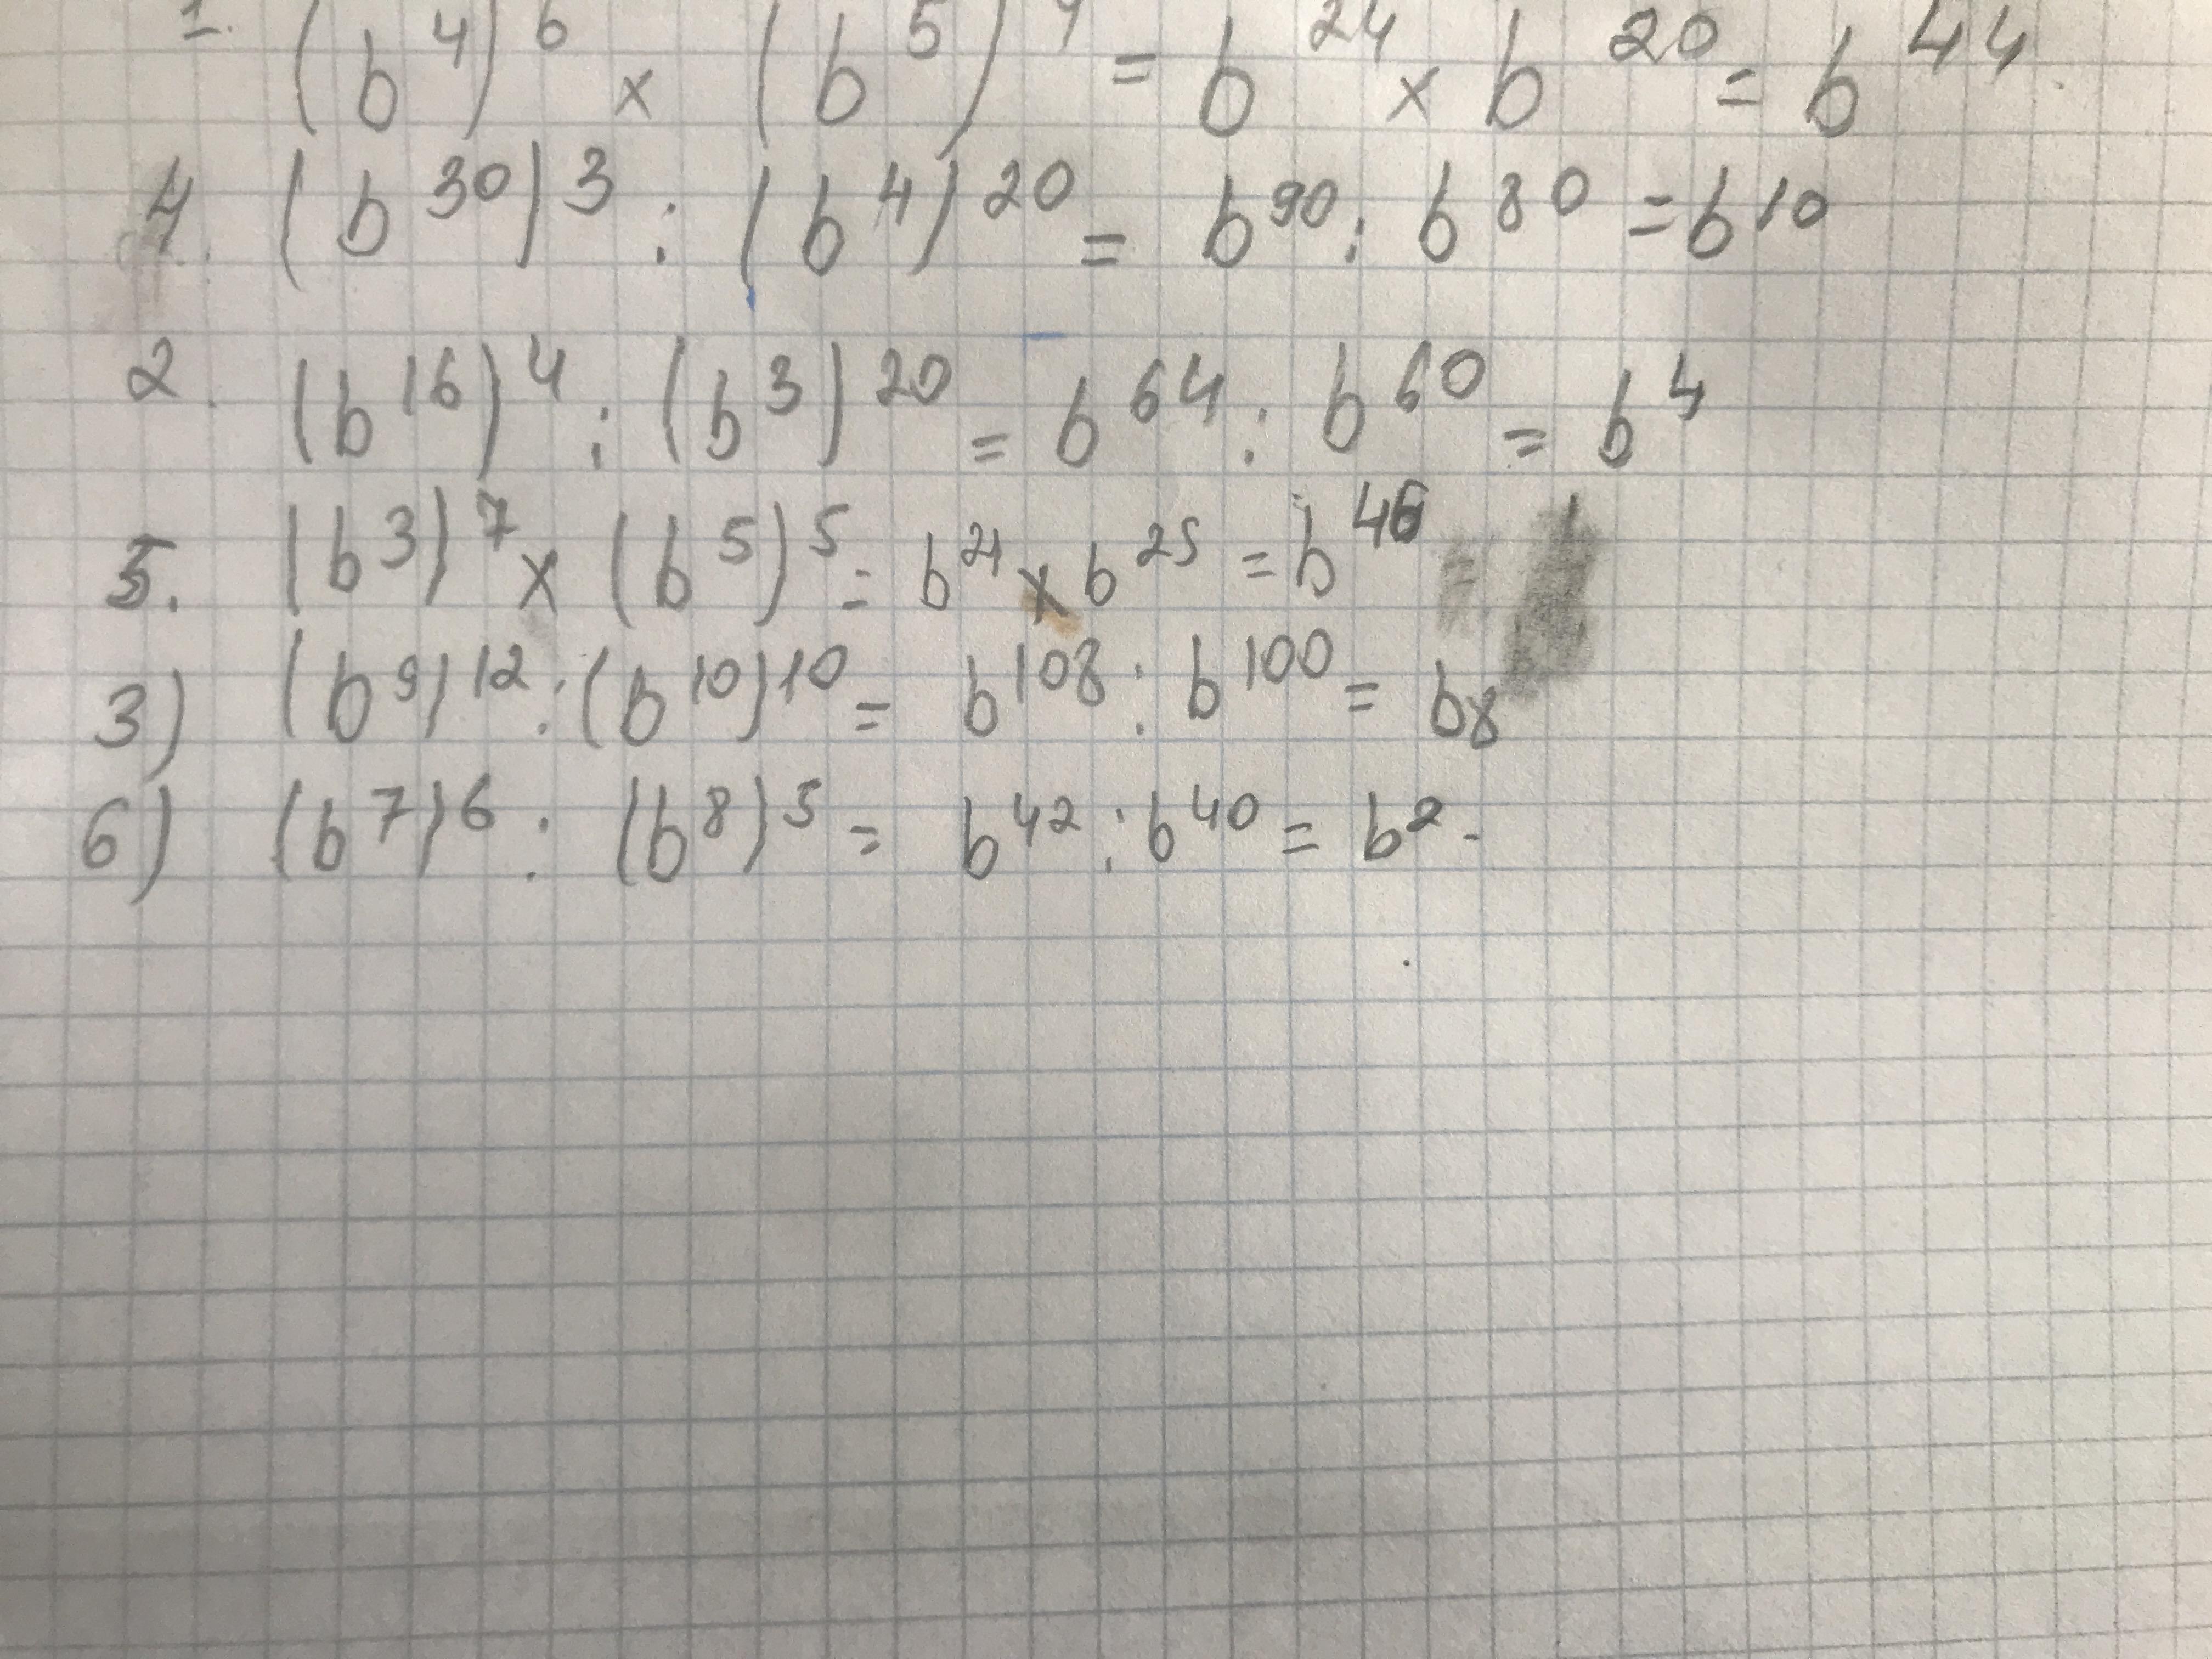 1. (b⁴)⁶ x (b⁵)⁴ = b²⁴ x b²⁰ = b⁴⁴.
4. (b³⁰)³ : (b⁴)²⁰ = b⁹⁰ : b⁸⁰ = b¹⁰
2. (b¹⁶)⁴ : (b³)²⁰ = b⁶⁴ : b⁶⁰ = b⁴
5. (b³)⁷ x (b⁵)⁵ = b²¹ x b²⁵ = b⁴⁶ =
3) (b⁹)¹² : (b¹⁰)¹⁰ = b¹⁰⁸ : b¹⁰⁰ = b8
6) (b⁷)⁶ : (b⁸)⁵ = b⁴² : b⁴⁰ = b².